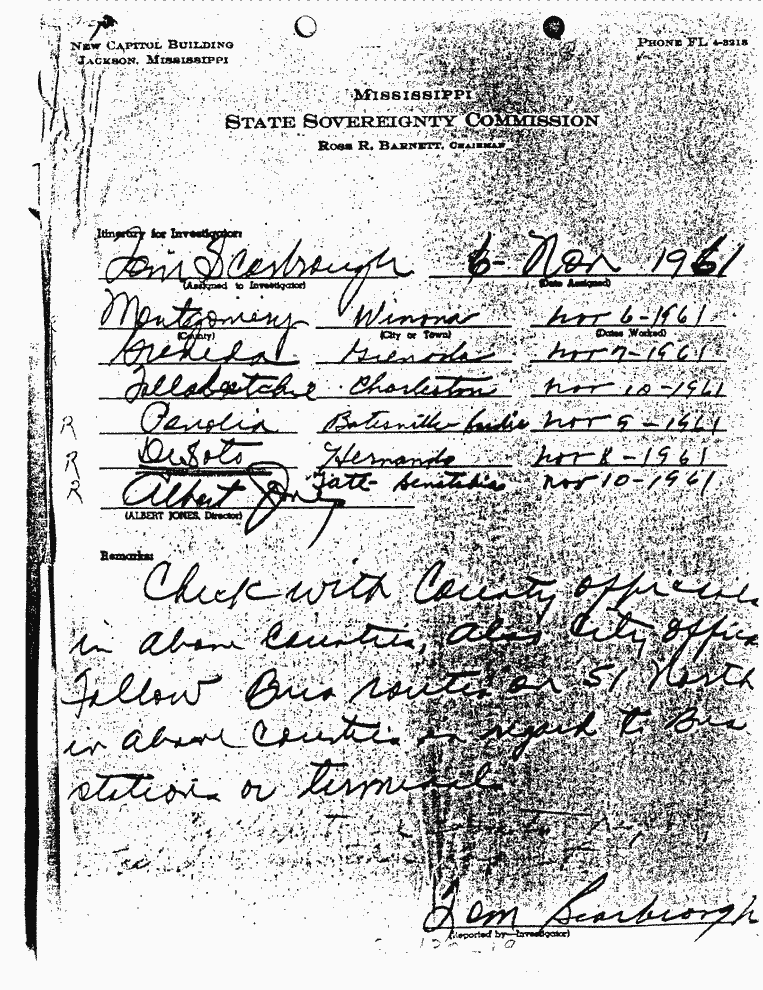 NEW CAPITOL BUILDING
JACKSON, MISSISSIPPI
PHONE FL 4-3218
MISSISSIPPI
STATE SOVEREIGNTY COMMISSION
ROSS R. BARNETT, CHAIRMAN
Itinerary for Investigator:
Tom Scarbrough 6- Nov 1961
(Assigned to Investigator) (Date Assigned)
Montgomery Winona Nov 6-1961
(County) (City or Town) (Dates Worked)
Grenada Grenada Nov 7-1961
Tallahatchie Charleston Nov 10-1961
R Panola Batesville Nov 9-1961
R DeSoto Hernando Nov 8-1961
R Tate Senatobia Nov 10-1961
Albert Jones
(ALBERT JONES, Director)
Remarks:
Check with County
in above Counties, also City
Follow Bus routes on 51 North
in above Counties in regard to Bus
stations or terminals
Tom Scarbrough
(Reported by—Investigator)